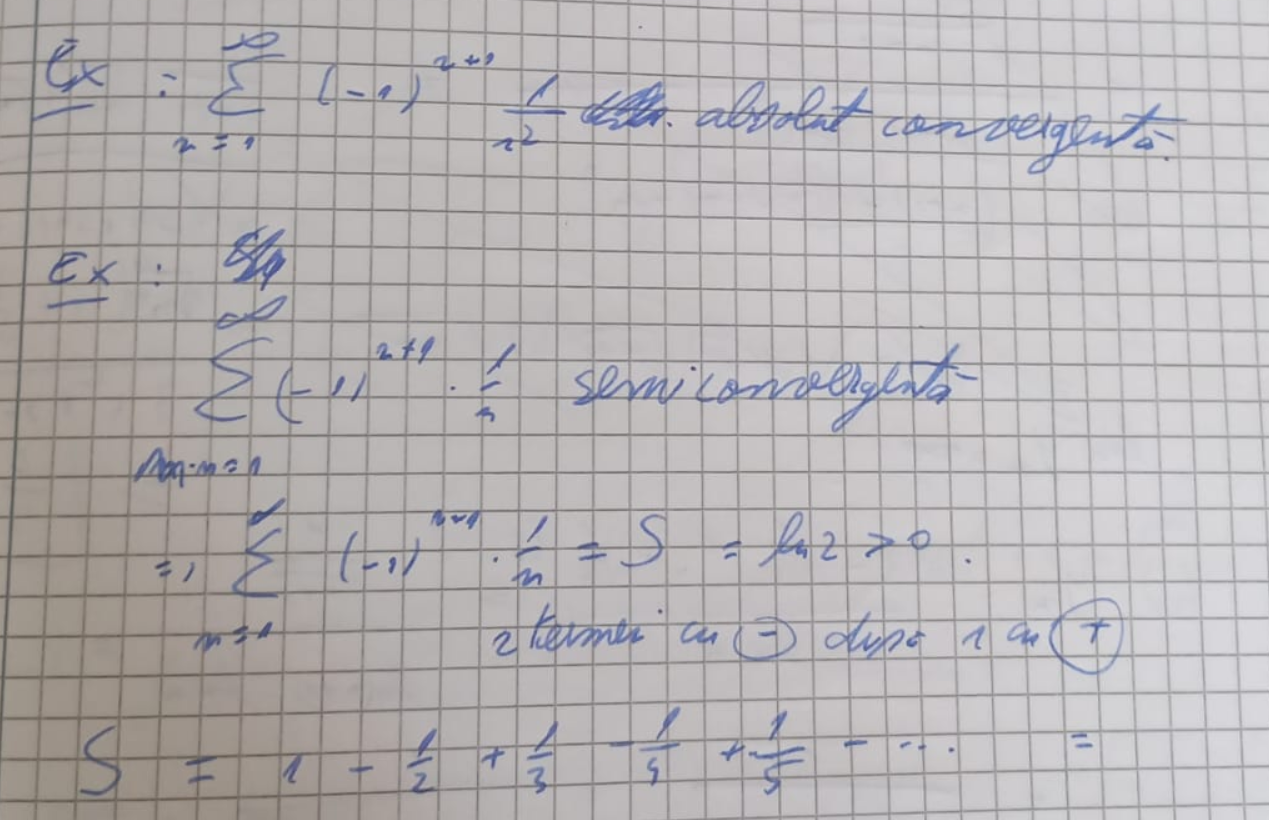 Ex : ∑_{n=1}^{∞} (-1)^{n+1} 1/n² absolut convergentă.
Ex :
∑_{n=1}^{∞} (-1)^{n+1} · 1/n semiconvergentă
=> ∑_{n=1}^{∞} (-1)^{n+1} · 1/n = S = ln 2 > 0 .
2 termeni cu (-) după 1 cu (+)
S = 1 - 1/2 + 1/3 - 1/4 + 1/5 - ... =